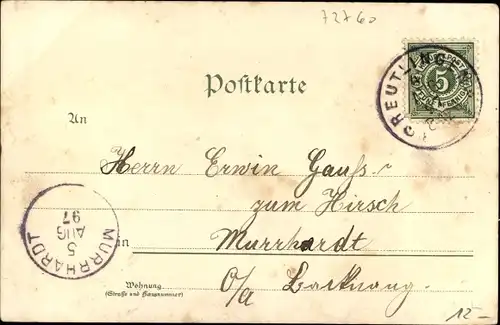 72760
REUTLINGEN
5
Postkarte
An
Herrn Erwin Gauß
zum Hirsch
in Murrhardt
O/A Backnang
Wohnung
(Straße und Hausnummer)
MURRHARDT
5
AUG
97
12-